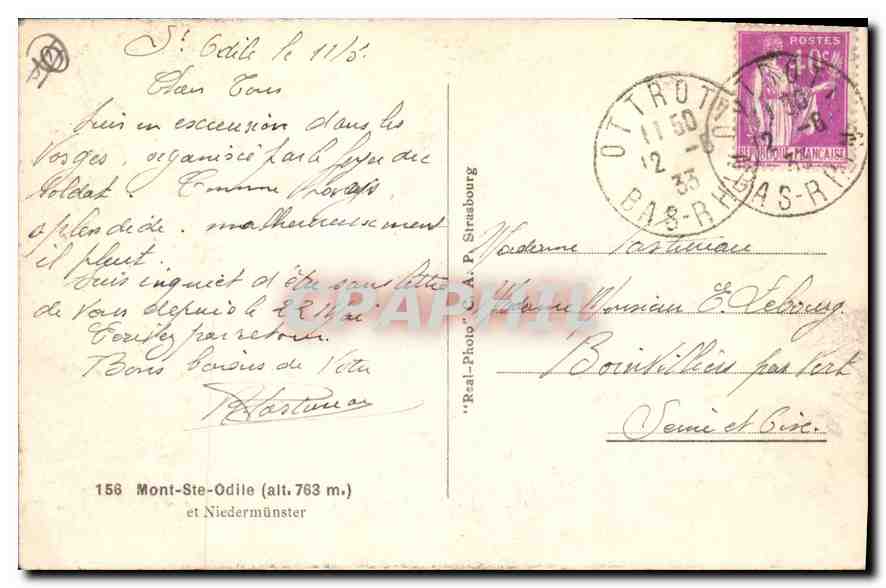 St Odile le 11/6.
Chers Tous
Suis en excursion dans les
Vosges, organisée par le foyer du
soldat.
splendide. malheureusement
il pleut.
Suis inquiet d'être sans lettre
de vous depuis le 22 Mai
Ecrivez par retour.
Bons baisers de Votre
156 Mont-Ste-Odile (alt. 763 m.)
et Niedermünster
"Real-Photo" C. A. P. Strasbourg
CPAPHIL
POSTES
40c
REPUBLIQUE FRANÇAISE
OTTROTT
11 50
12 -6
33
BAS-RHIN
OTTROTT
11 50
12 -6
33
BAS-RHIN
Madame
Madame Monsieur E. Lebourg.
Boinvilliers par Vert
Seine et Oise.